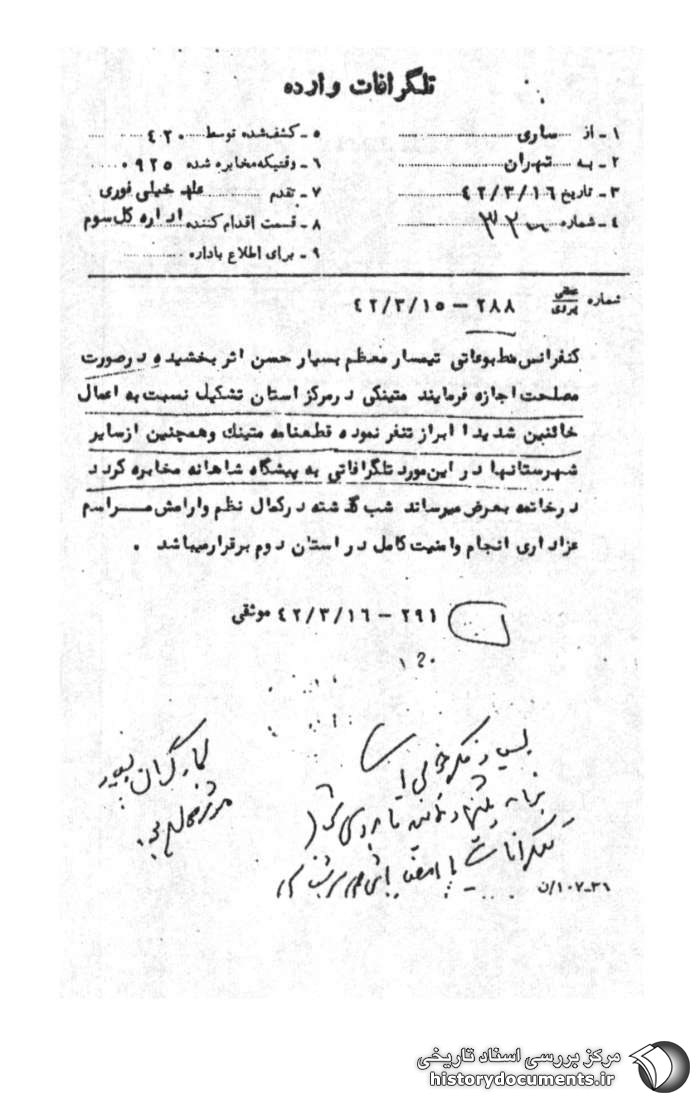 تلگرافات وارده
۱ - از ساری
۲ - به تهران
۳ - تاریخ ۴۲/۳/۱۶
۴ - شماره
۵ - کشف‌شده توسط ۴۲۰
۶ - وقتیکه مخابره شده ۰۹۲۵
۷ - تقدم خیلی فوری
۸ - قسمت اقدام کننده اداره کل سوم
۹ - برای اطلاع باداره
شماره عطفی پیروی ۲۸۸ - ۴۲/۳/۱۵
کنفرانس مطبوعاتی تیمسار معظم بسیار حسن اثر بخشید و درصورت
مصلحت اجازه فرمایند متینگی درمرکز استان تشکیل نسبت به اعمال
خائنین شدیدا ابراز تنفر نموده قطعنامه متینک وهمچنین ازسایر
شهرستانها در این‌مورد تلگرافاتی به پیشگاه شاهانه مخابره گردد
درخاتمه بعرض میرساند شب گذشته درکمال نظم وارامش مراسم
عزاداری انجام وامنیت کامل در استان دوم برقرارمیباشد .
۲۹۱ - ۴۲/۳/۱۶ موثقی
بسیار فکر خوبی است
کارگران بسیار
تلگرافات با امضاء
۳۶-۱۰۷/ن
مرکز بررسی اسناد تاریخی
historydocuments.ir